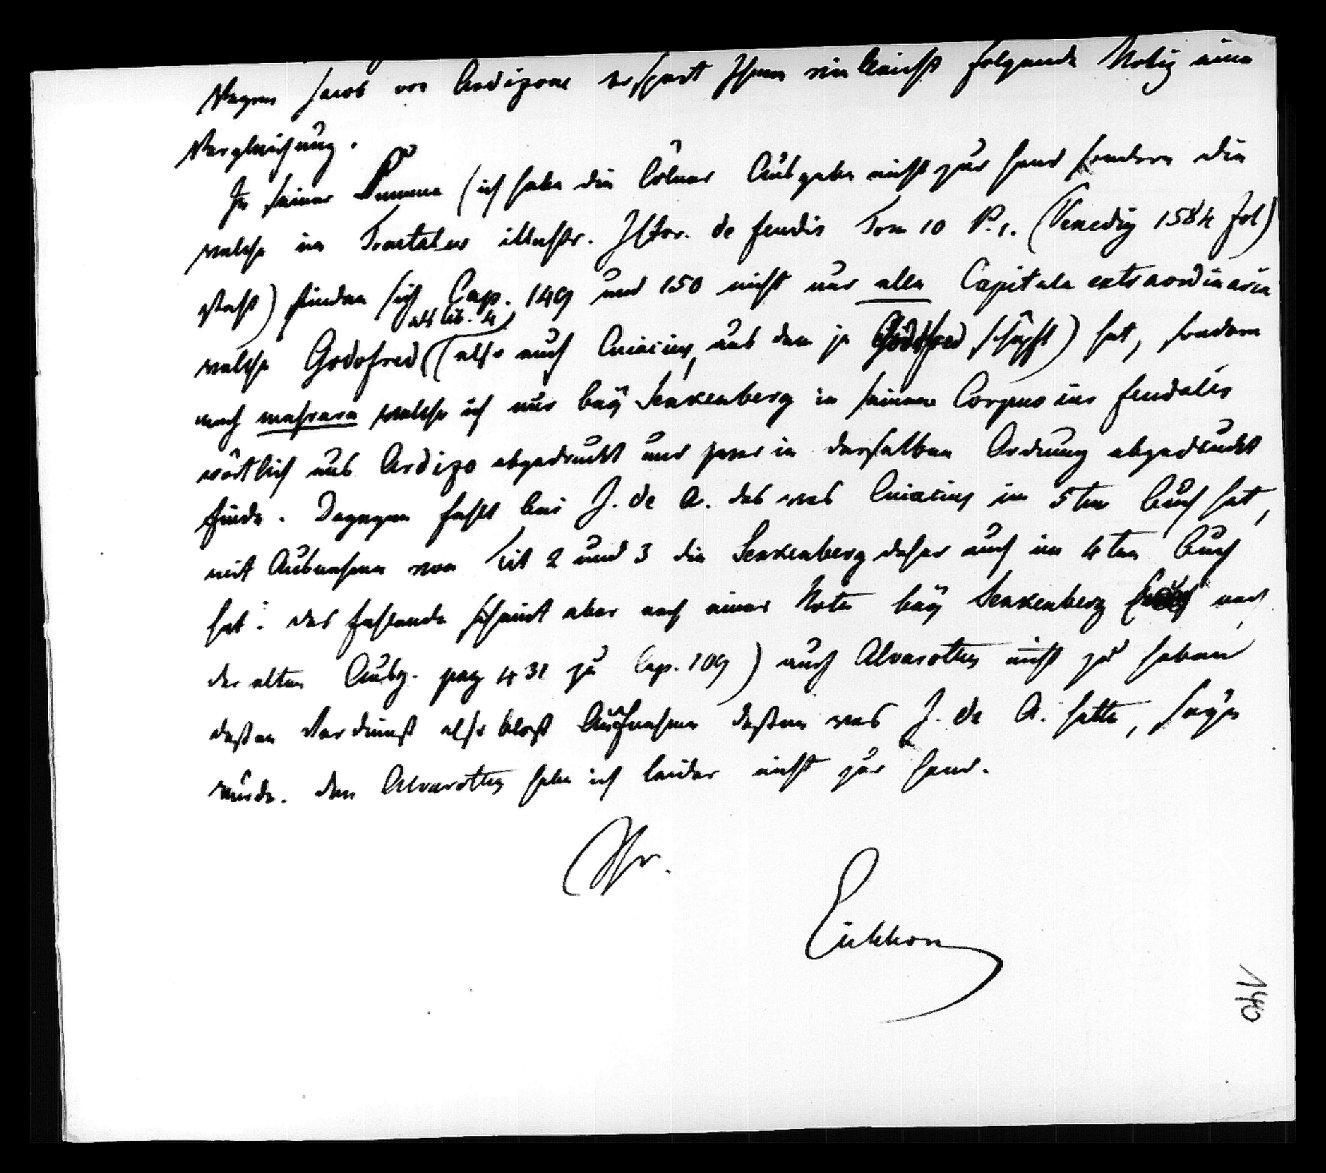 Wegen Jacob von Ardizone erspart Ihnen vielleicht folgende Notiz eine
Vergleichung.
In seiner Summa (ich habe die Cölner Ausgabe nicht zur Hand sondern die
welche im Tractatus illustr. Ictor. de feudis Tom 10 P. 1. (Venedig 1584 fol)
steht) finden sich Cap. 149 und 150 nicht nur alle Capitula extraordinaria
als lib. 4
welche Godofred (also auch Cuiacius, aus dem ja Godofred schöpft) hat, sondern
noch mehrere welche ich nur bey Senkenberg in seinem Corpus iur feudalis
wörtlich aus Ardizo abgedruckt und zwar in derselben Ordnung abgedruckt
finde. Dagegen fehlt bei J. de A. das was Cuiacius im 5ten Buch hat,
mit Ausnahme von Tit 2 und 3 die Senkenberg daher auch im 4ten Buch
hat: das fehlende scheint aber nach einer Note bey Senkenberg
der alten Ausg. pag 431 zu Cap. 109) auch Alvarottus nicht zu haben
dessen Verdienst also blos Aufnahme dessen was J. de A. hatte, seyn
würde. Den Alvarottus habe ich leider nicht zur Hand.
Ihr.
Eichhorn
140